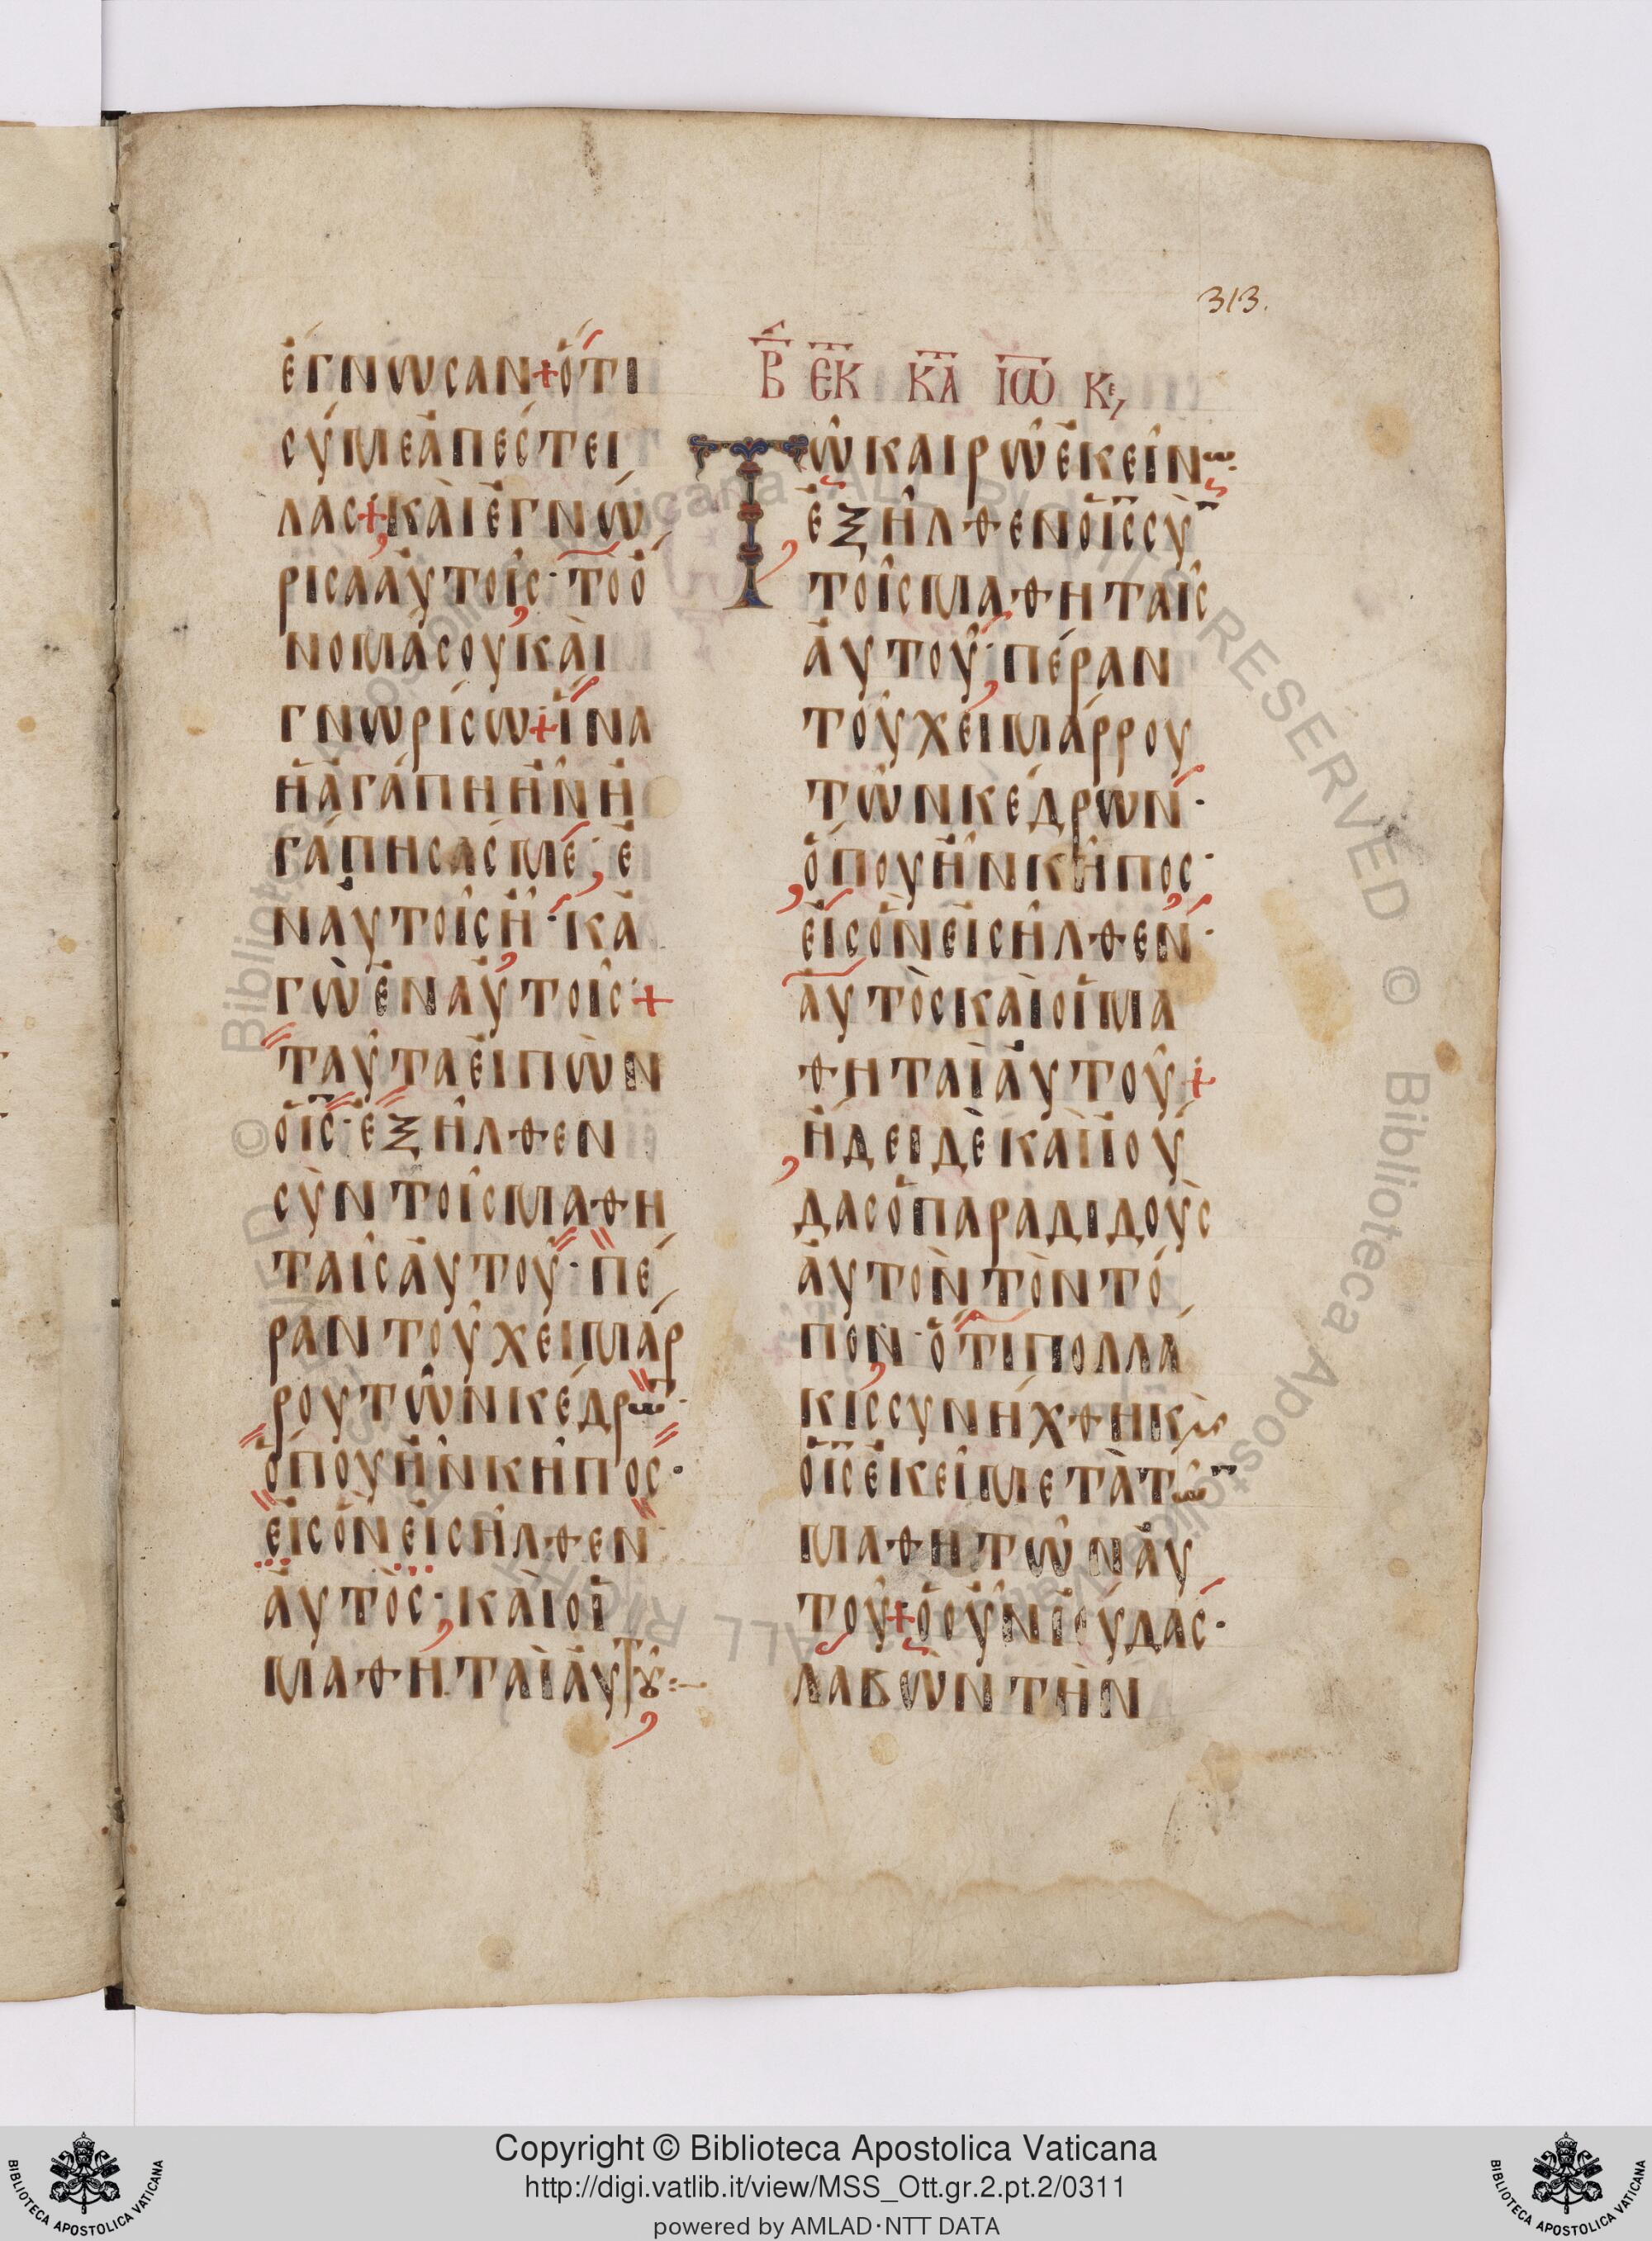 313.
ἔγνωσαν + ὅτι
σύ με ἀπέστει
λας + καὶ ἐγνώ
ρισα αὐτοῖς · τὸ ὄ
νομά σου καὶ
γνωρίσω + ἵνα
ἡ ἀγάπη ἣν ἠ
γάπησάς με · ἐ
ν αὐτοῖς ᾖ · κἀ
γὼ ἐν αὐτοῖς +
ταῦτα εἰπὼν
ὁ ις · ἐξῆλθεν
σὺν τοῖς μαθη
ταῖς αὐτοῦ · πέ
ραν τοῦ χειμάρ
ρου τῶν κέδρω ·
ὅπου ἦν κῆπος ·
εἰς ὃν εἰσῆλθεν
αὐτὸς · καὶ οἱ
μαθηταὶ αὐτοῦ :–
Β ΕΚ ΚΛ ΙΩ Κε,
Τῶ καιρῶ ἐκείνω ·
ἐξῆλθεν ὁ ις σὺ
τοῖς μαθηταῖς
αὐτοῦ · πέραν
τοῦ χειμάρρου
τῶν κέδρων ·
ὅπου ἦν κῆπος ·
εἰς ὃν εἰσῆλθεν ·
αὐτὸς καὶ οἱ μα
θηταὶ αὐτοῦ +
ᾔδει δὲ καὶ ἰού
δας ὁ παραδιδοὺς
αὐτὸν τὸν τό
πον · ὅτι πολλά
κις συνήχθη κὶ
ὁ ις ἐκεῖ μετὰ τῶ
μαθητῶν αὐ
τοῦ + ὁ οὖν ἰούδας ·
λαβὼν τὴν
Biblioteca Apostolica Vaticana ALL RIGHTS RESERVED ©
Copyright © Biblioteca Apostolica Vaticana
http://digi.vatlib.it/view/MSS_Ott.gr.2.pt.2/0311
powered by AMLAD·NTT DATA
BIBLIOTECA APOSTOLICA VATICANA
BIBLIOTECA APOSTOLICA VATICANA